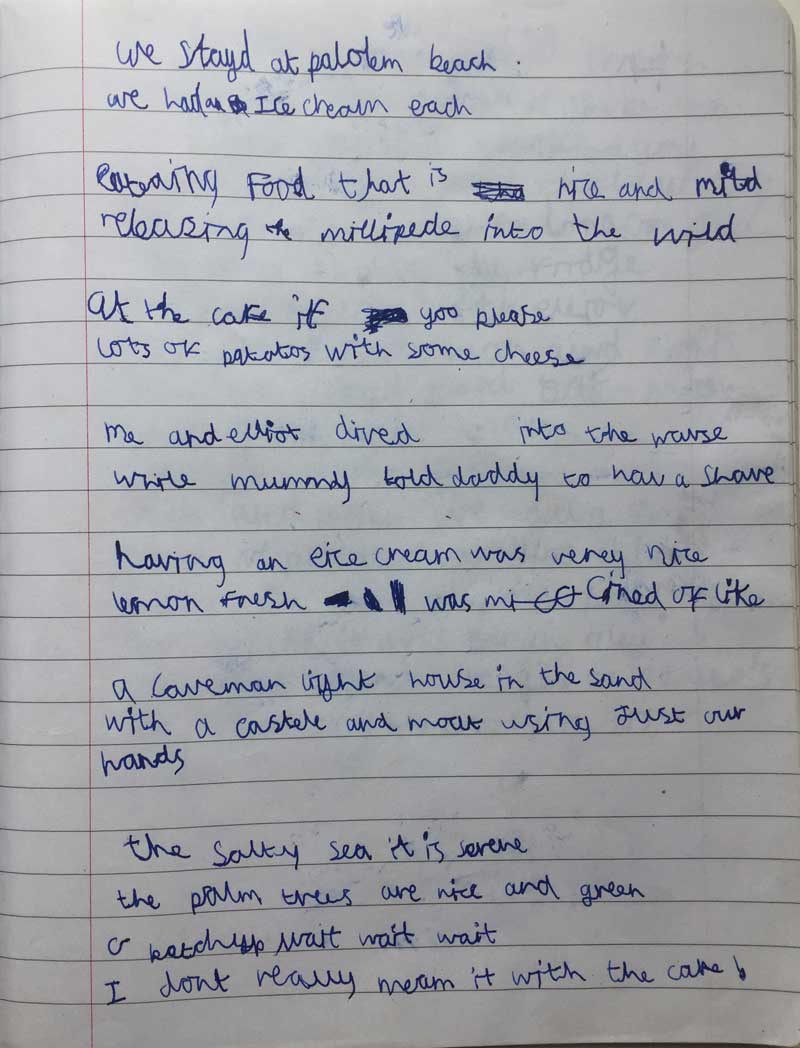 we stayd at palolem beach.
we had an Ice cream each
eateaing food that is nice and mild
releasing the millipede into the wild
at the cafe if yoo please
lots of patatos with some cheese
me and elliot dived into the wave
while mummy told daddy to hav a shave
having an eice cream was verey nice
lemon fresh was mi cined of like
a caveman light house in the sand
with a castele and moat using Just our
hands
the salty sea it is serene
the palm trees are nice and green
ketchup wait wait wait
I dont really mean it with the cake